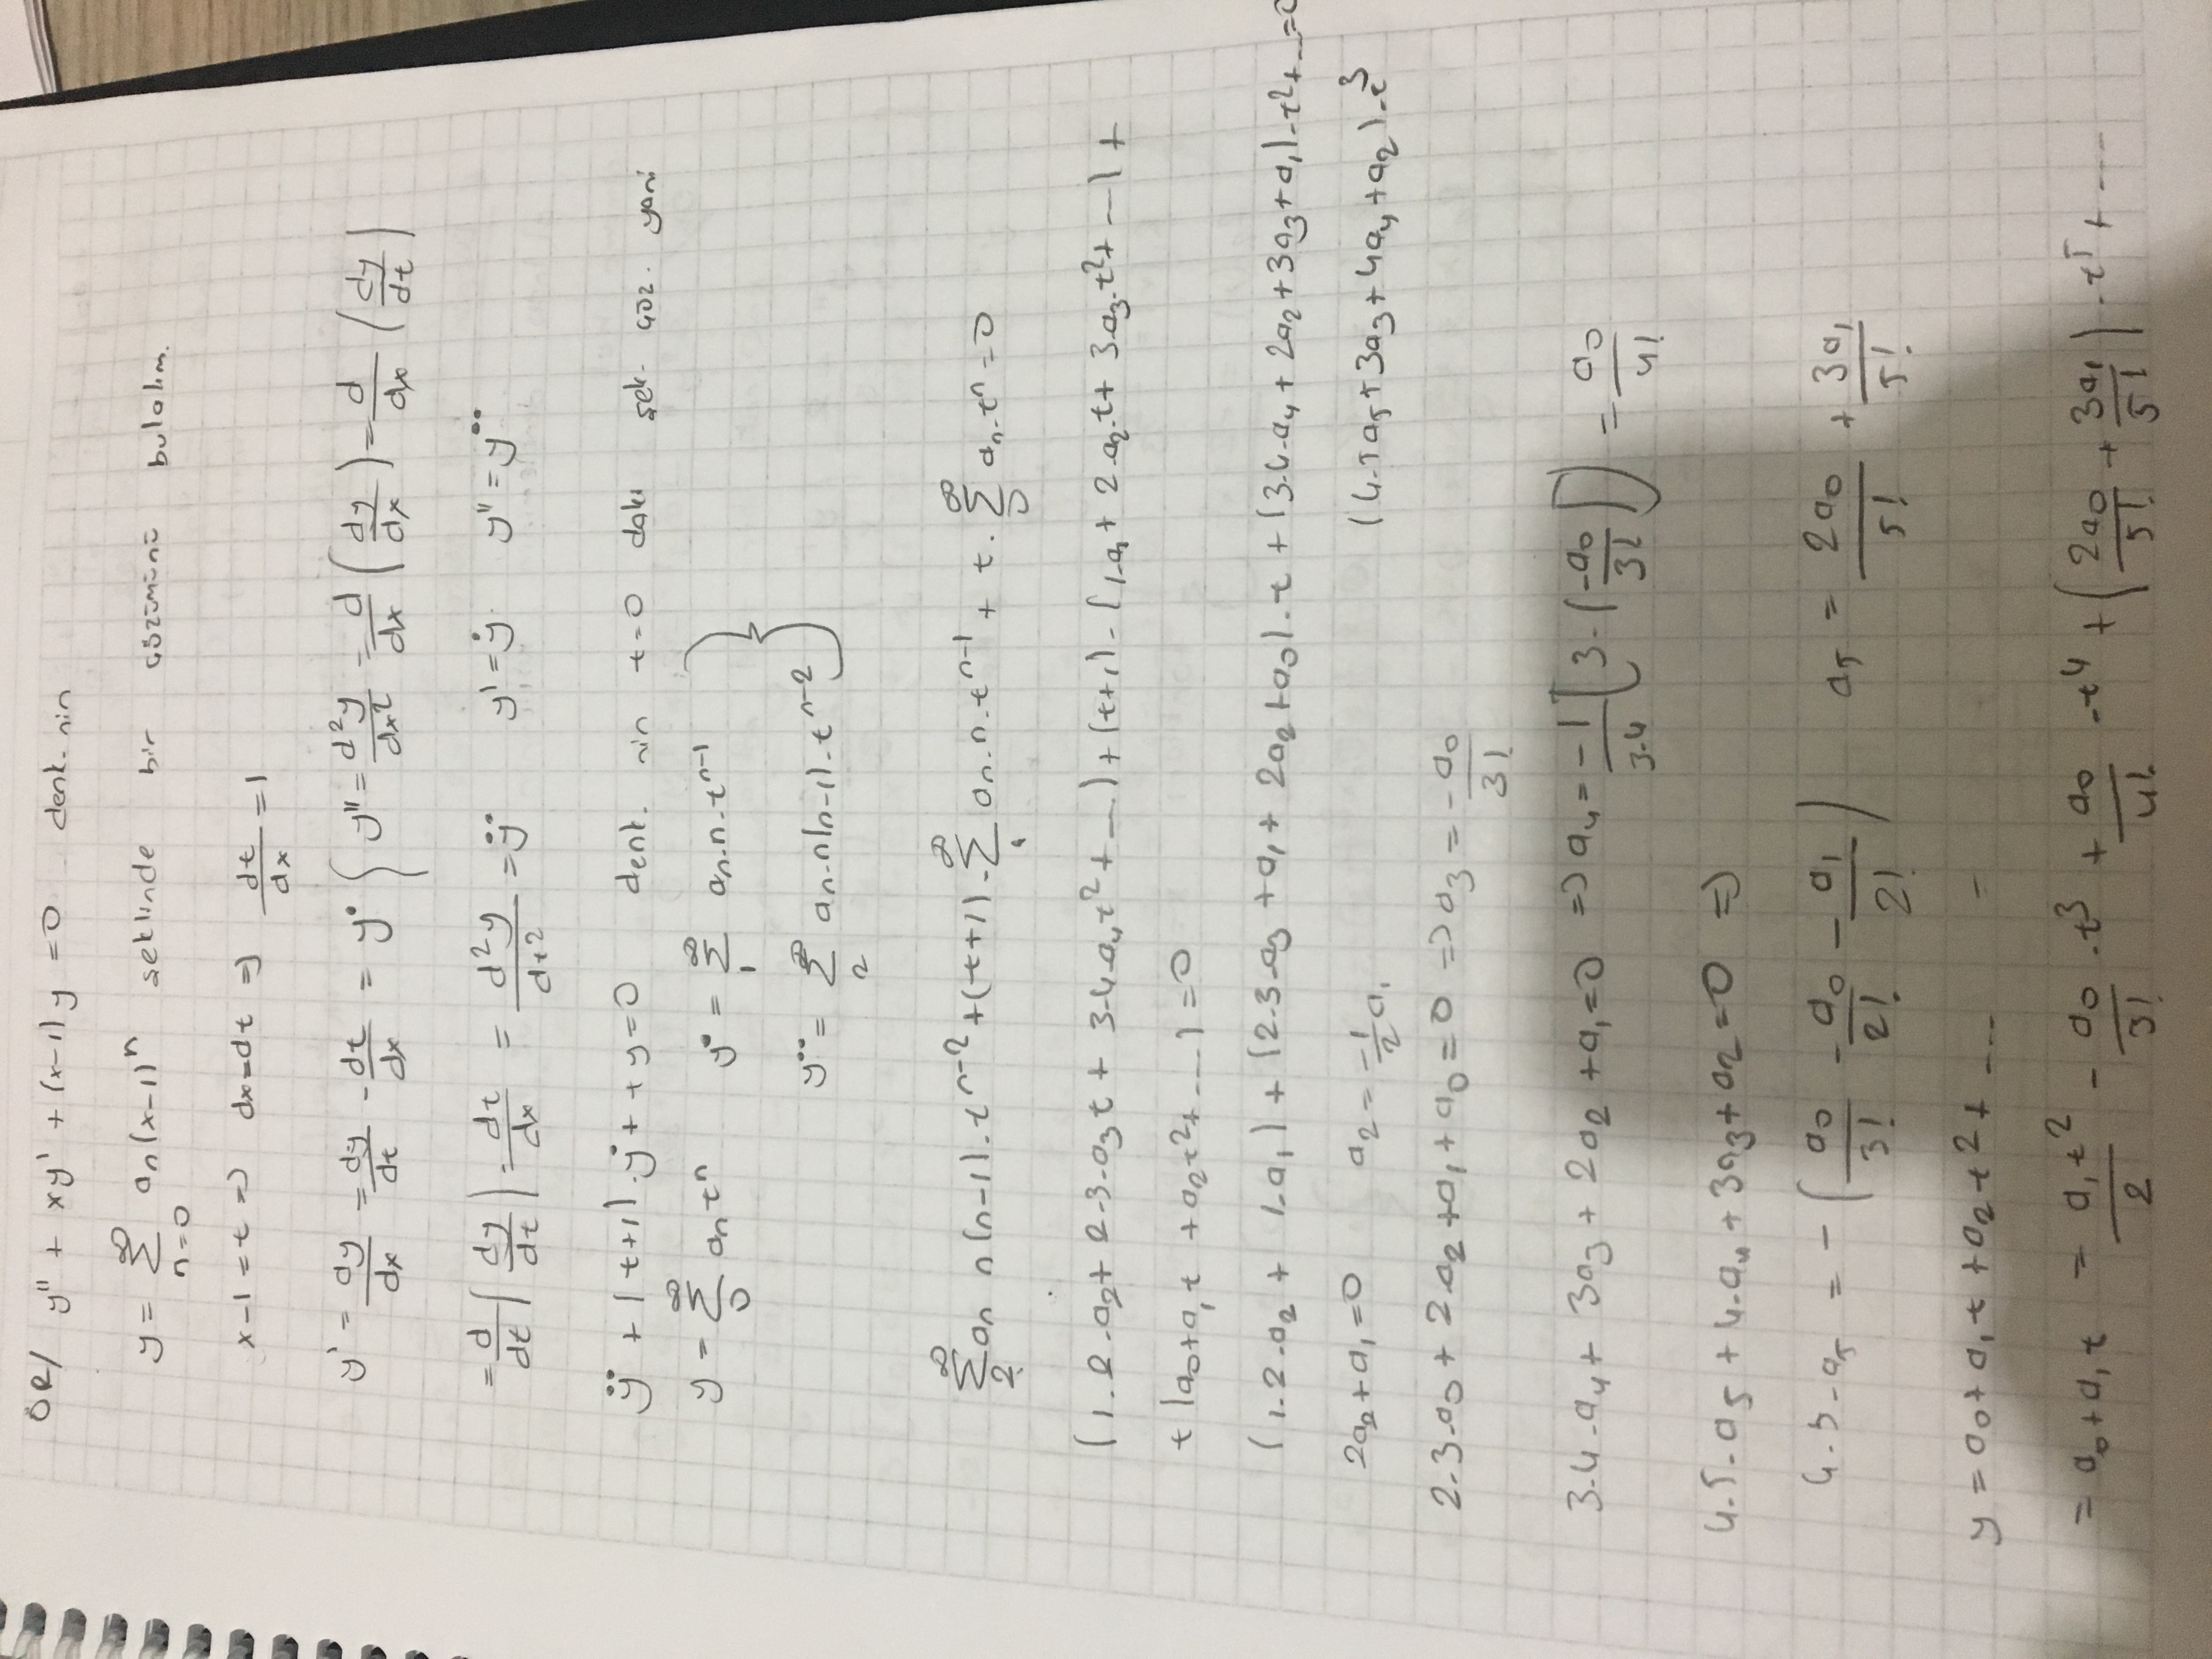 ÖR/ y'' + xy' + (x-1)y = 0 denk. nin
y = ∑_{n=0}^{∞} aₙ(x-1)ⁿ şeklinde bir çözümünü bulalım.
x-1 = t => dx = dt => dt/dx = 1
y' = dy/dx = dy/dt · dt/dx = y˙ { y'' = d²y/dx² = d/dx (dy/dx) = d/dx (dy/dt)
= d/dt (dy/dt) · dt/dx = d²y/dt² = ÿ y' = ẏ y'' = y¨
ÿ + (t+1)·ẏ + ty = 0 denk. nin t=0 daki şek. çöz. yani
y = ∑_{0}^{∞} aₙtⁿ y˙ = ∑_{1}^{∞} aₙ·n·tⁿ⁻¹ }
y¨ = ∑_{2}^{∞} aₙ·n(n-1)·tⁿ⁻²
∑_{2}^{∞} aₙ n(n-1)·tⁿ⁻² + (t+1)·∑_{1}^{∞} aₙ·n·tⁿ⁻¹ + t·∑_{0}^{∞} aₙ·tⁿ = 0
(1·2·a₂ + 2·3·a₃t + 3·4·a₄t² + ...) + (t+1)·(1·a₁ + 2·a₂·t + 3·a₃·t² + ...) +
t(a₀ + a₁t + a₂t² + ...) = 0
(1·2·a₂ + 1·a₁) + (2·3·a₃ + a₁ + 2a₂ + a₀)·t + (3·4·a₄ + 2a₂ + 3a₃ + a₁)·t² + ... = 0
2a₂ + a₁ = 0 a₂ = -1/2 a₁ (4·5a₅ + 3a₃ + 4a₄ + a₂)·t³
2·3·a₀ + 2·a₂ + a₁ + a₀ = 0 => a₃ = -a₀/3!
3·4·a₄ + 3a₃ + 2a₂ + a₁ = 0 => a₄ = -1/3·4 [3·(-a₀/3!)] = a₀/4!
4·5·a₅ + 4·a₄ + 3a₃ + a₂ = 0 =>
4·5·a₅ = -(a₀/3! - a₀/2! - a₁/2!) a₅ = 2a₀/5! + 3a₁/5!
y = a₀ + a₁t + a₂t² + ... =
= a₀ + a₁t = a₁t²/2 - a₀/3!·t³ + a₀/4!·t⁴ + (2a₀/5! + 3a₁/5!)·t⁵ + ...